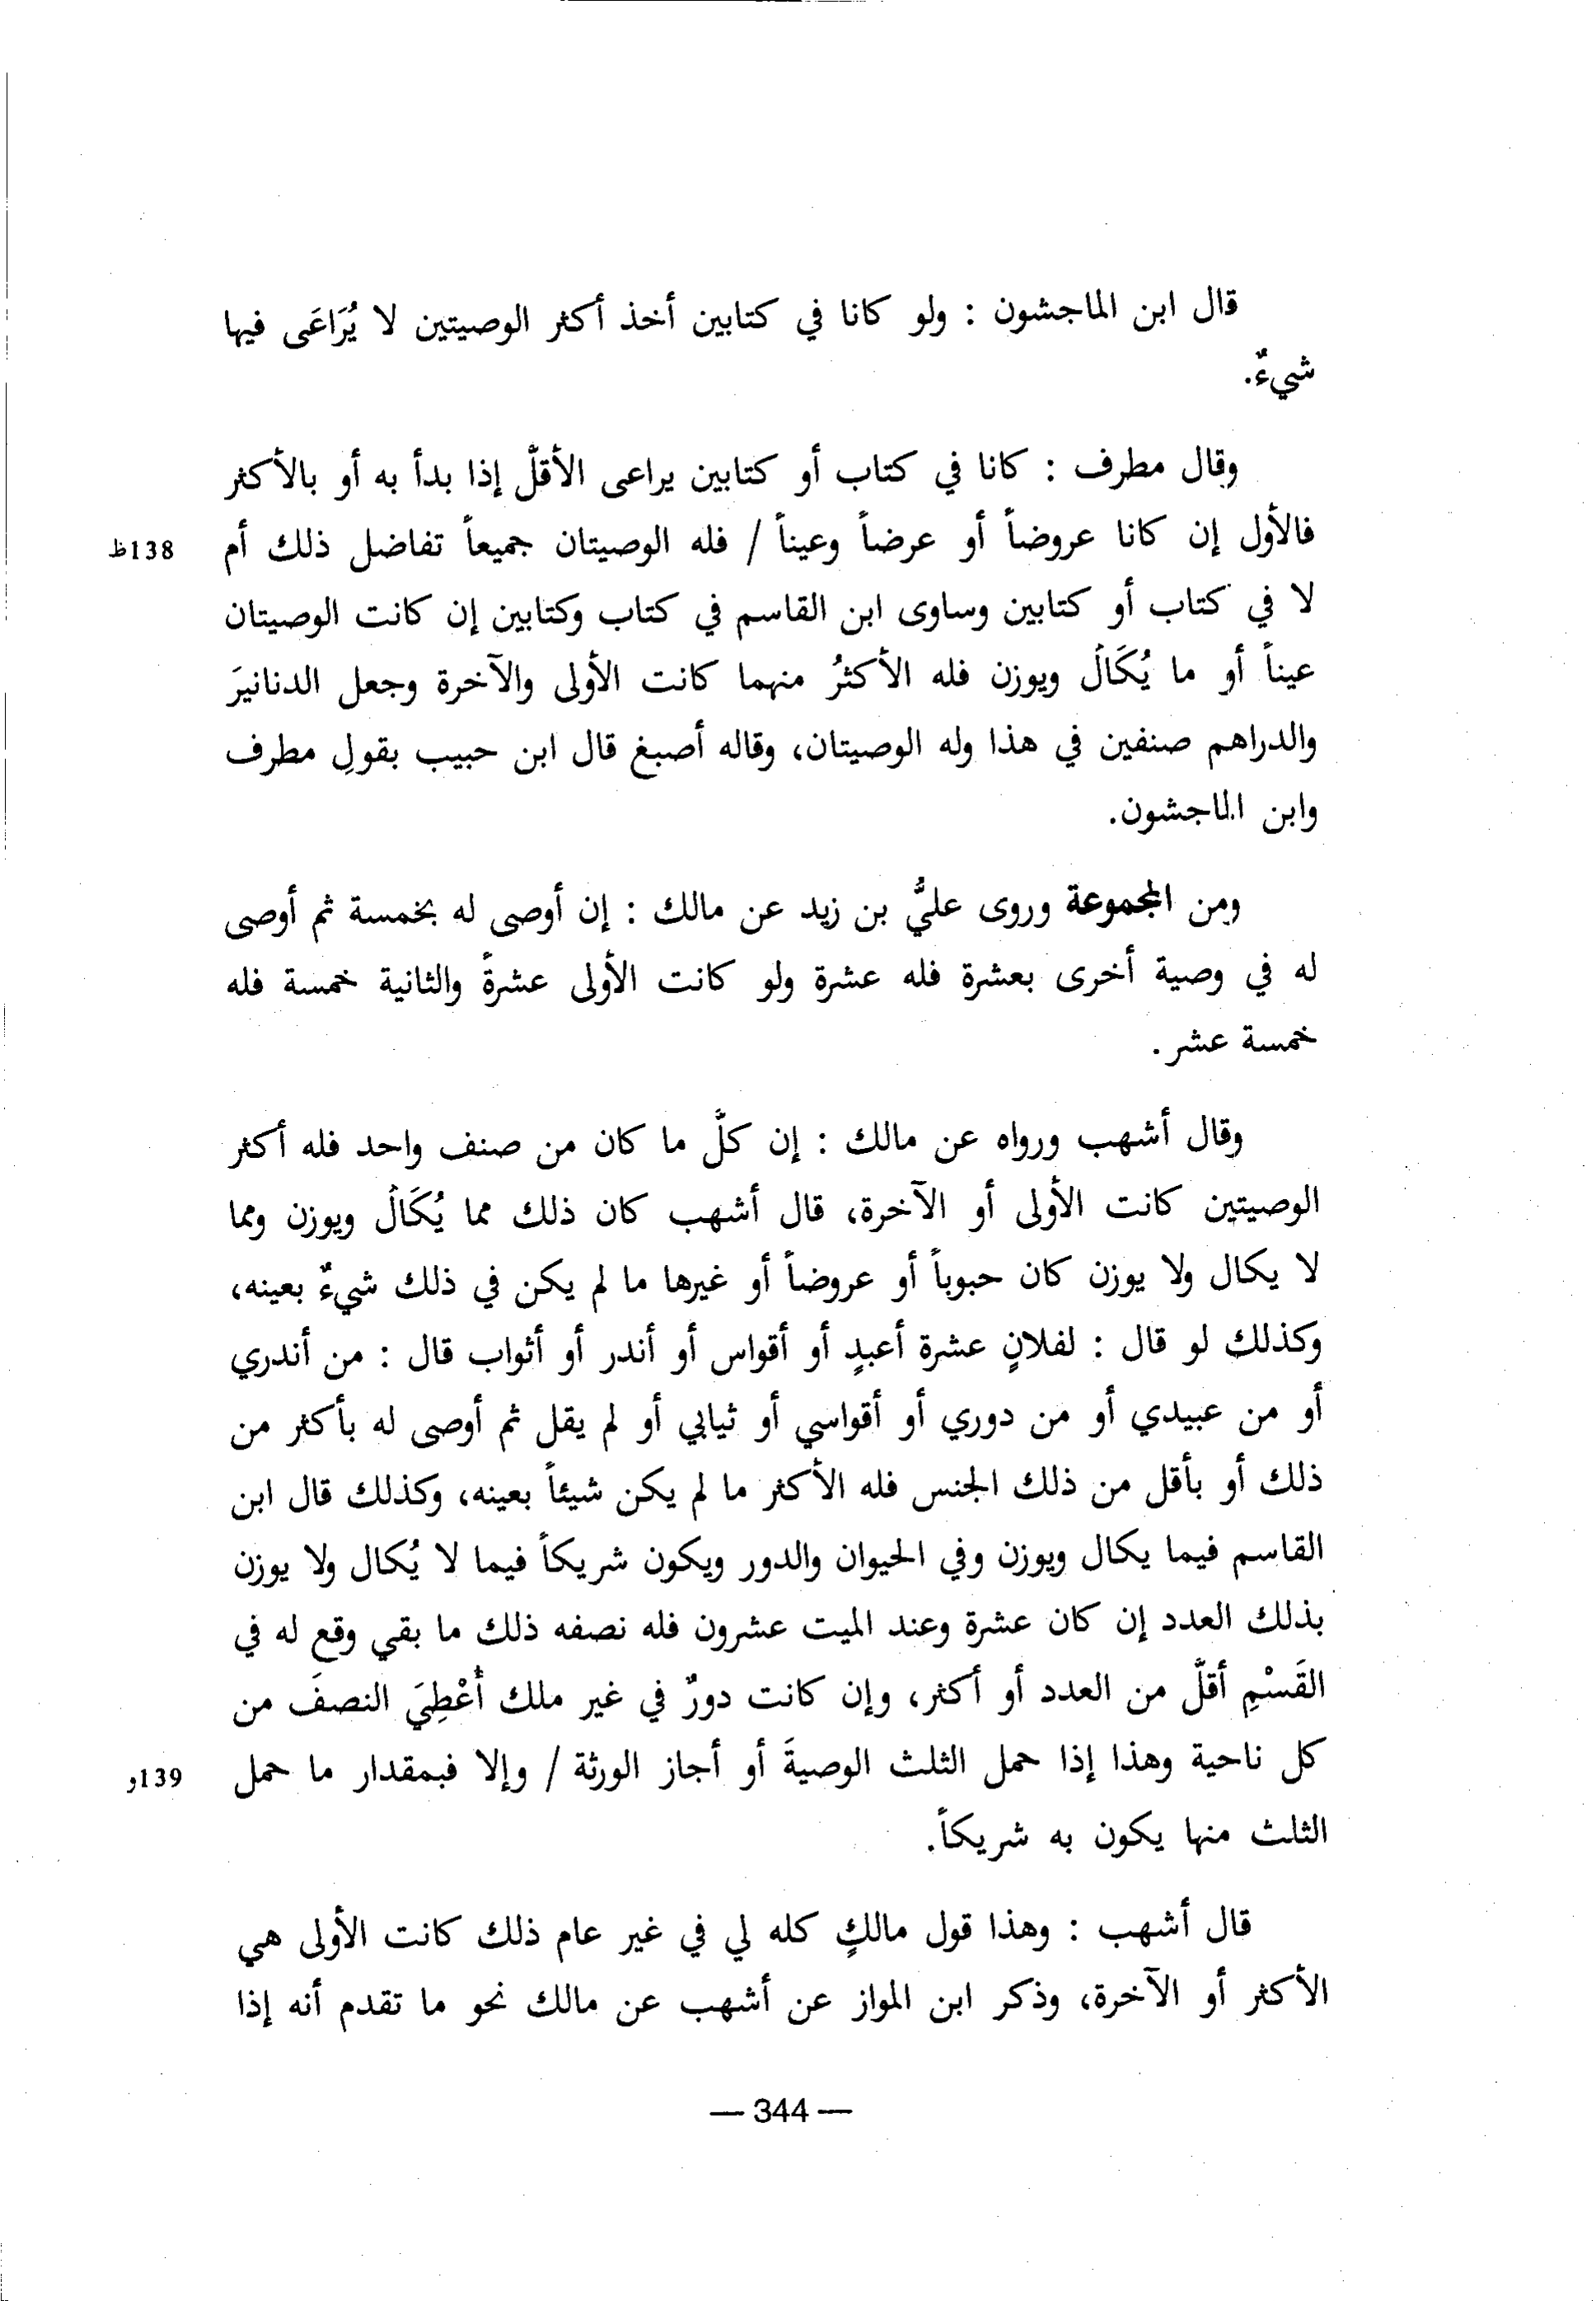 قال ابن الماجشون : ولو كانا في كتابين أخذ أكثر الوصيتين لا يُرَاعَى فيها
شيءٌ.
وقال مطرف : كانا في كتاب أو كتابين يراعى الأقلّ إذا بدأ به أو بالأكثر
فالأول إن كانا عروضاً أو عرضاً وعيناً / فله الوصيتان جميعاً تفاضل ذلك أم
138ظ
لا في كتاب أو كتابين وساوى ابن القاسم في كتاب وكتابين إن كانت الوصيتان
عيناً أو ما يُكَالُ ويوزن فله الأكثرُ منهما كانت الأولى والآخرة وجعل الدنانيرَ
والدراهم صنفين في هذا وله الوصيتان، وقاله أصبغ قال ابن حبيب بقولِ مطرف
وابن الماجشون.
ومن المجموعة وروى عليُّ بن زيد عن مالك : إن أوصى له بخمسة ثم أوصى
له في وصية أخرى بعشرة فله عشرة ولو كانت الأولى عشرةً والثانية خمسة فله
خمسة عشر.
وقال أشهب ورواه عن مالك : إن كلَّ ما كان من صنف واحد فله أكثر
الوصيتين كانت الأولى أو الآخرة، قال أشهب كان ذلك مما يُكَالُ ويوزن ومما
لا يكال ولا يوزن كان حبوباً أو عروضاً أو غيرها ما لم يكن في ذلك شيءٌ بعينه،
وكذلك لو قال : لفلانٍ عشرة أعبدٍ أو أقواس أو أندر أو أثواب قال : من أندري
أو من عبيدي أو من دوري أو أقواسي أو ثيابي أو لم يقل ثم أوصى له بأكثر من
ذلك أو بأقل من ذلك الجنس فله الأكثر ما لم يكن شيئاً بعينه، وكذلك قال ابن
القاسم فيما يكال ويوزن وفي الحيوان والدور ويكون شريكاً فيما لا يُكال ولا يوزن
بذلك العدد إن كان عشرة وعند الميت عشرون فله نصفه ذلك ما بقي وقع له في
القَسْمِ أقلَّ من العدد أو أكثر، وإن كانت دورٌ في غير ملك أُعْطِيَ النصفَ من
كل ناحية وهذا إذا حمل الثلث الوصيةَ أو أجاز الورثة / وإلا فبمقدار ما حمل
139و
الثلث منها يكون به شريكاً.
قال أشهب : وهذا قول مالكٍ كله لي في غير عام ذلك كانت الأولى هي
الأكثر أو الآخرة، وذكر ابن المواز عن أشهب عن مالك نحو ما تقدم أنه إذا
— 344 —